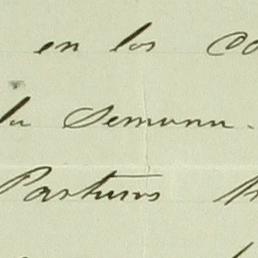 en los
la Semana.
Pasturas